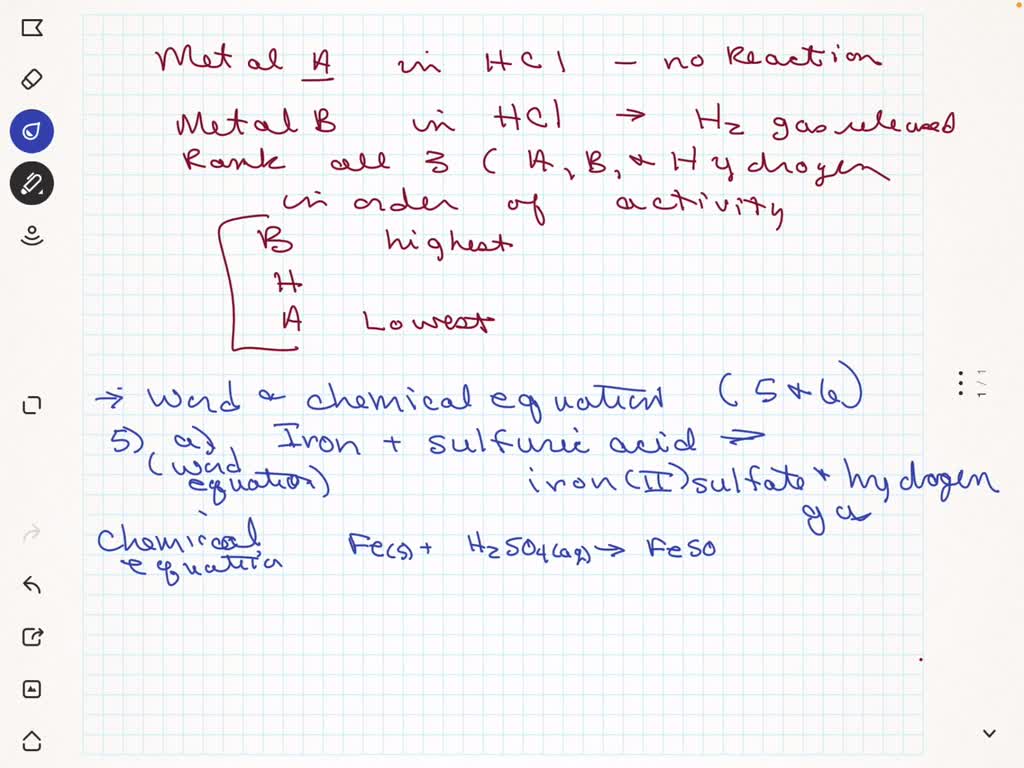 Metal A in HCl – no Reaction
Metal B in HCl → H2 gas released
Rank all 3 (A, B, & Hydrogen
in order of activity
B highest
H
A Lowest
→ Word & chemical equation (5 & 6)
5) a) Iron + sulfuric acid →
(word equation) iron(II) sulfate + hydrogen
gas
Chemical equation Fe(s) + H2SO4(aq) → FeSO
1 / 1